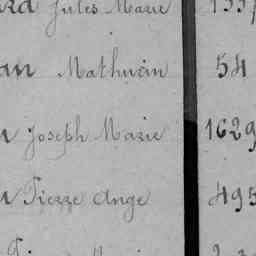 Jules Marie
an Mathurin 54
Joseph Marie 1629
Pierre Ange 495